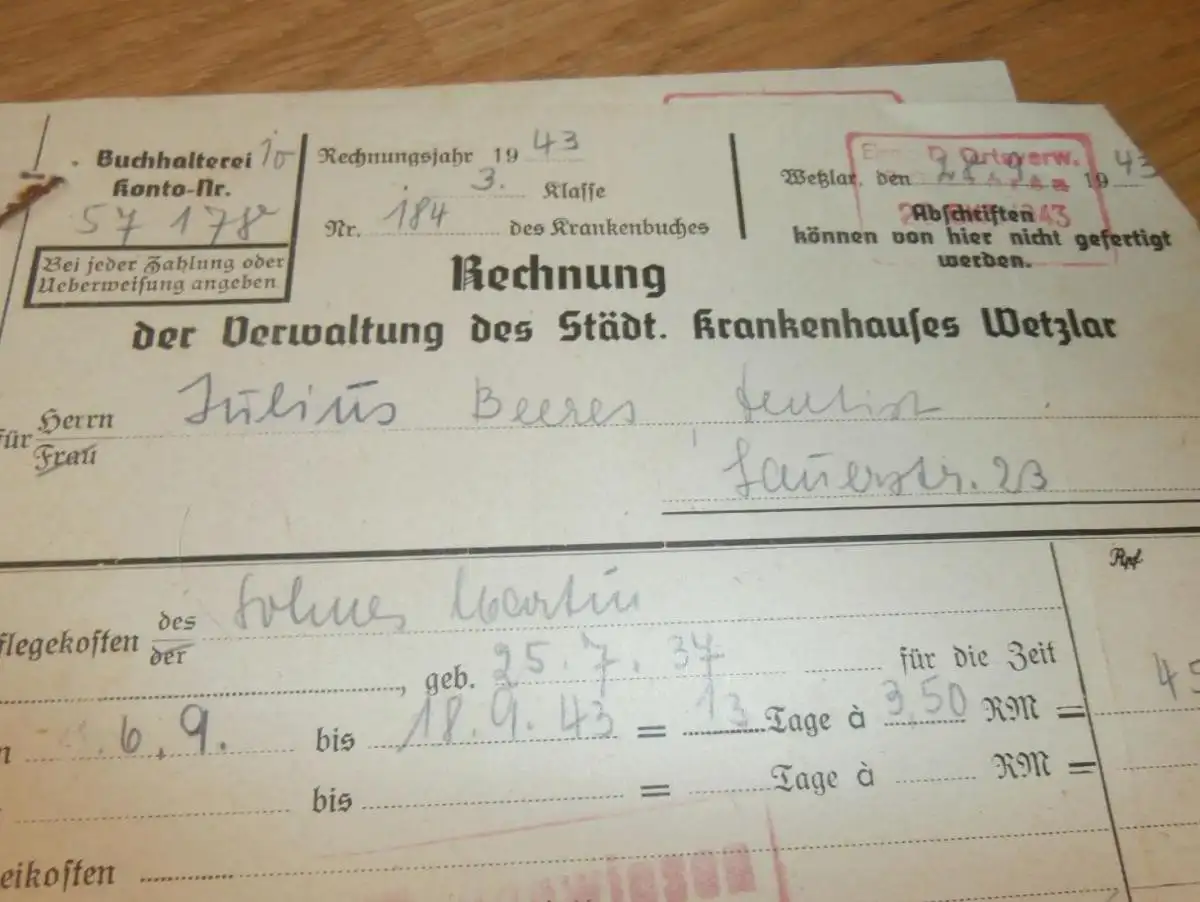 Buchhalterei 10
Konto-Nr.
57 178
Bei jeder Zahlung oder
Ueberweisung angeben
Rechnungsjahr 19 43
3. Klasse
Nr. 184 des Krankenbuches
Wetzlar, den 28 9 19 43
Ortsverw.
Abschriften
können von hier nicht gefertigt
werden.
Rechnung
der Verwaltung des Städt. Krankenhauses Wetzlar
für Herrn
Frau
Julius Beeres Dentist
Lauerstr. 23
Rpf.
flegekosten des
der
Sohnes Martin
, geb. 25.7.37 für die Zeit
6.9. bis 18.9.43 = 13 Tage à 3,50 RM = 45
bis = Tage à RM =
eikosten